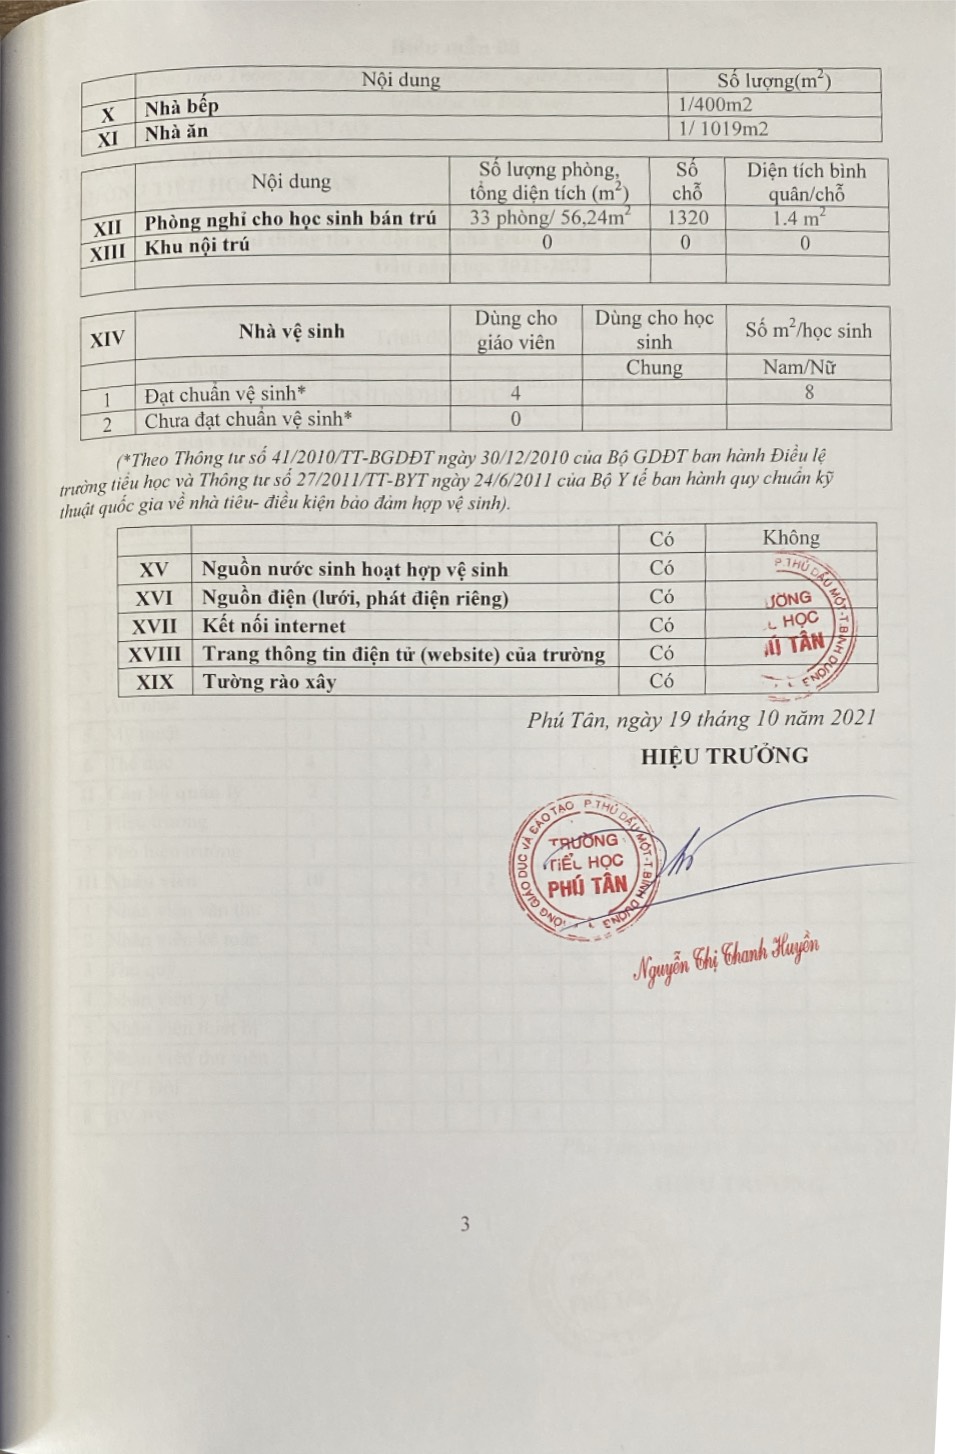 Nội dung Số lượng(m²)
X Nhà bếp 1/400m2
XI Nhà ăn 1/ 1019m2
Nội dung Số lượng phòng, tổng diện tích (m²) Số chỗ Diện tích bình quân/chỗ
XII Phòng nghỉ cho học sinh bán trú 33 phòng/ 56,24m² 1320 1.4 m²
XIII Khu nội trú 0 0 0
XIV Nhà vệ sinh Dùng cho giáo viên Dùng cho học sinh Số m²/học sinh
Chung Nam/Nữ
1 Đạt chuẩn vệ sinh* 4 8
2 Chưa đạt chuẩn vệ sinh* 0
(*Theo Thông tư số 41/2010/TT-BGDĐT ngày 30/12/2010 của Bộ GDĐT ban hành Điều lệ
trường tiểu học và Thông tư số 27/2011/TT-BYT ngày 24/6/2011 của Bộ Y tế ban hành quy chuẩn kỹ
thuật quốc gia về nhà tiêu- điều kiện bảo đảm hợp vệ sinh).
Có Không
XV Nguồn nước sinh hoạt hợp vệ sinh Có
XVI Nguồn điện (lưới, phát điện riêng) Có
XVII Kết nối internet Có
XVIII Trang thông tin điện tử (website) của trường Có
XIX Tường rào xây Có
P.THỦ DẦU MỘT-T.BÌNH DƯƠNG
HỌC
TÂN
Phú Tân, ngày 19 tháng 10 năm 2021
HIỆU TRƯỞNG
GIÁO DỤC VÀ ĐÀO TẠO P.THỦ DẦU MỘT-T.BÌNH DƯƠNG
TRƯỜNG
TIỂU HỌC
PHÚ TÂN
Nguyễn Thị Thanh Huyền
3